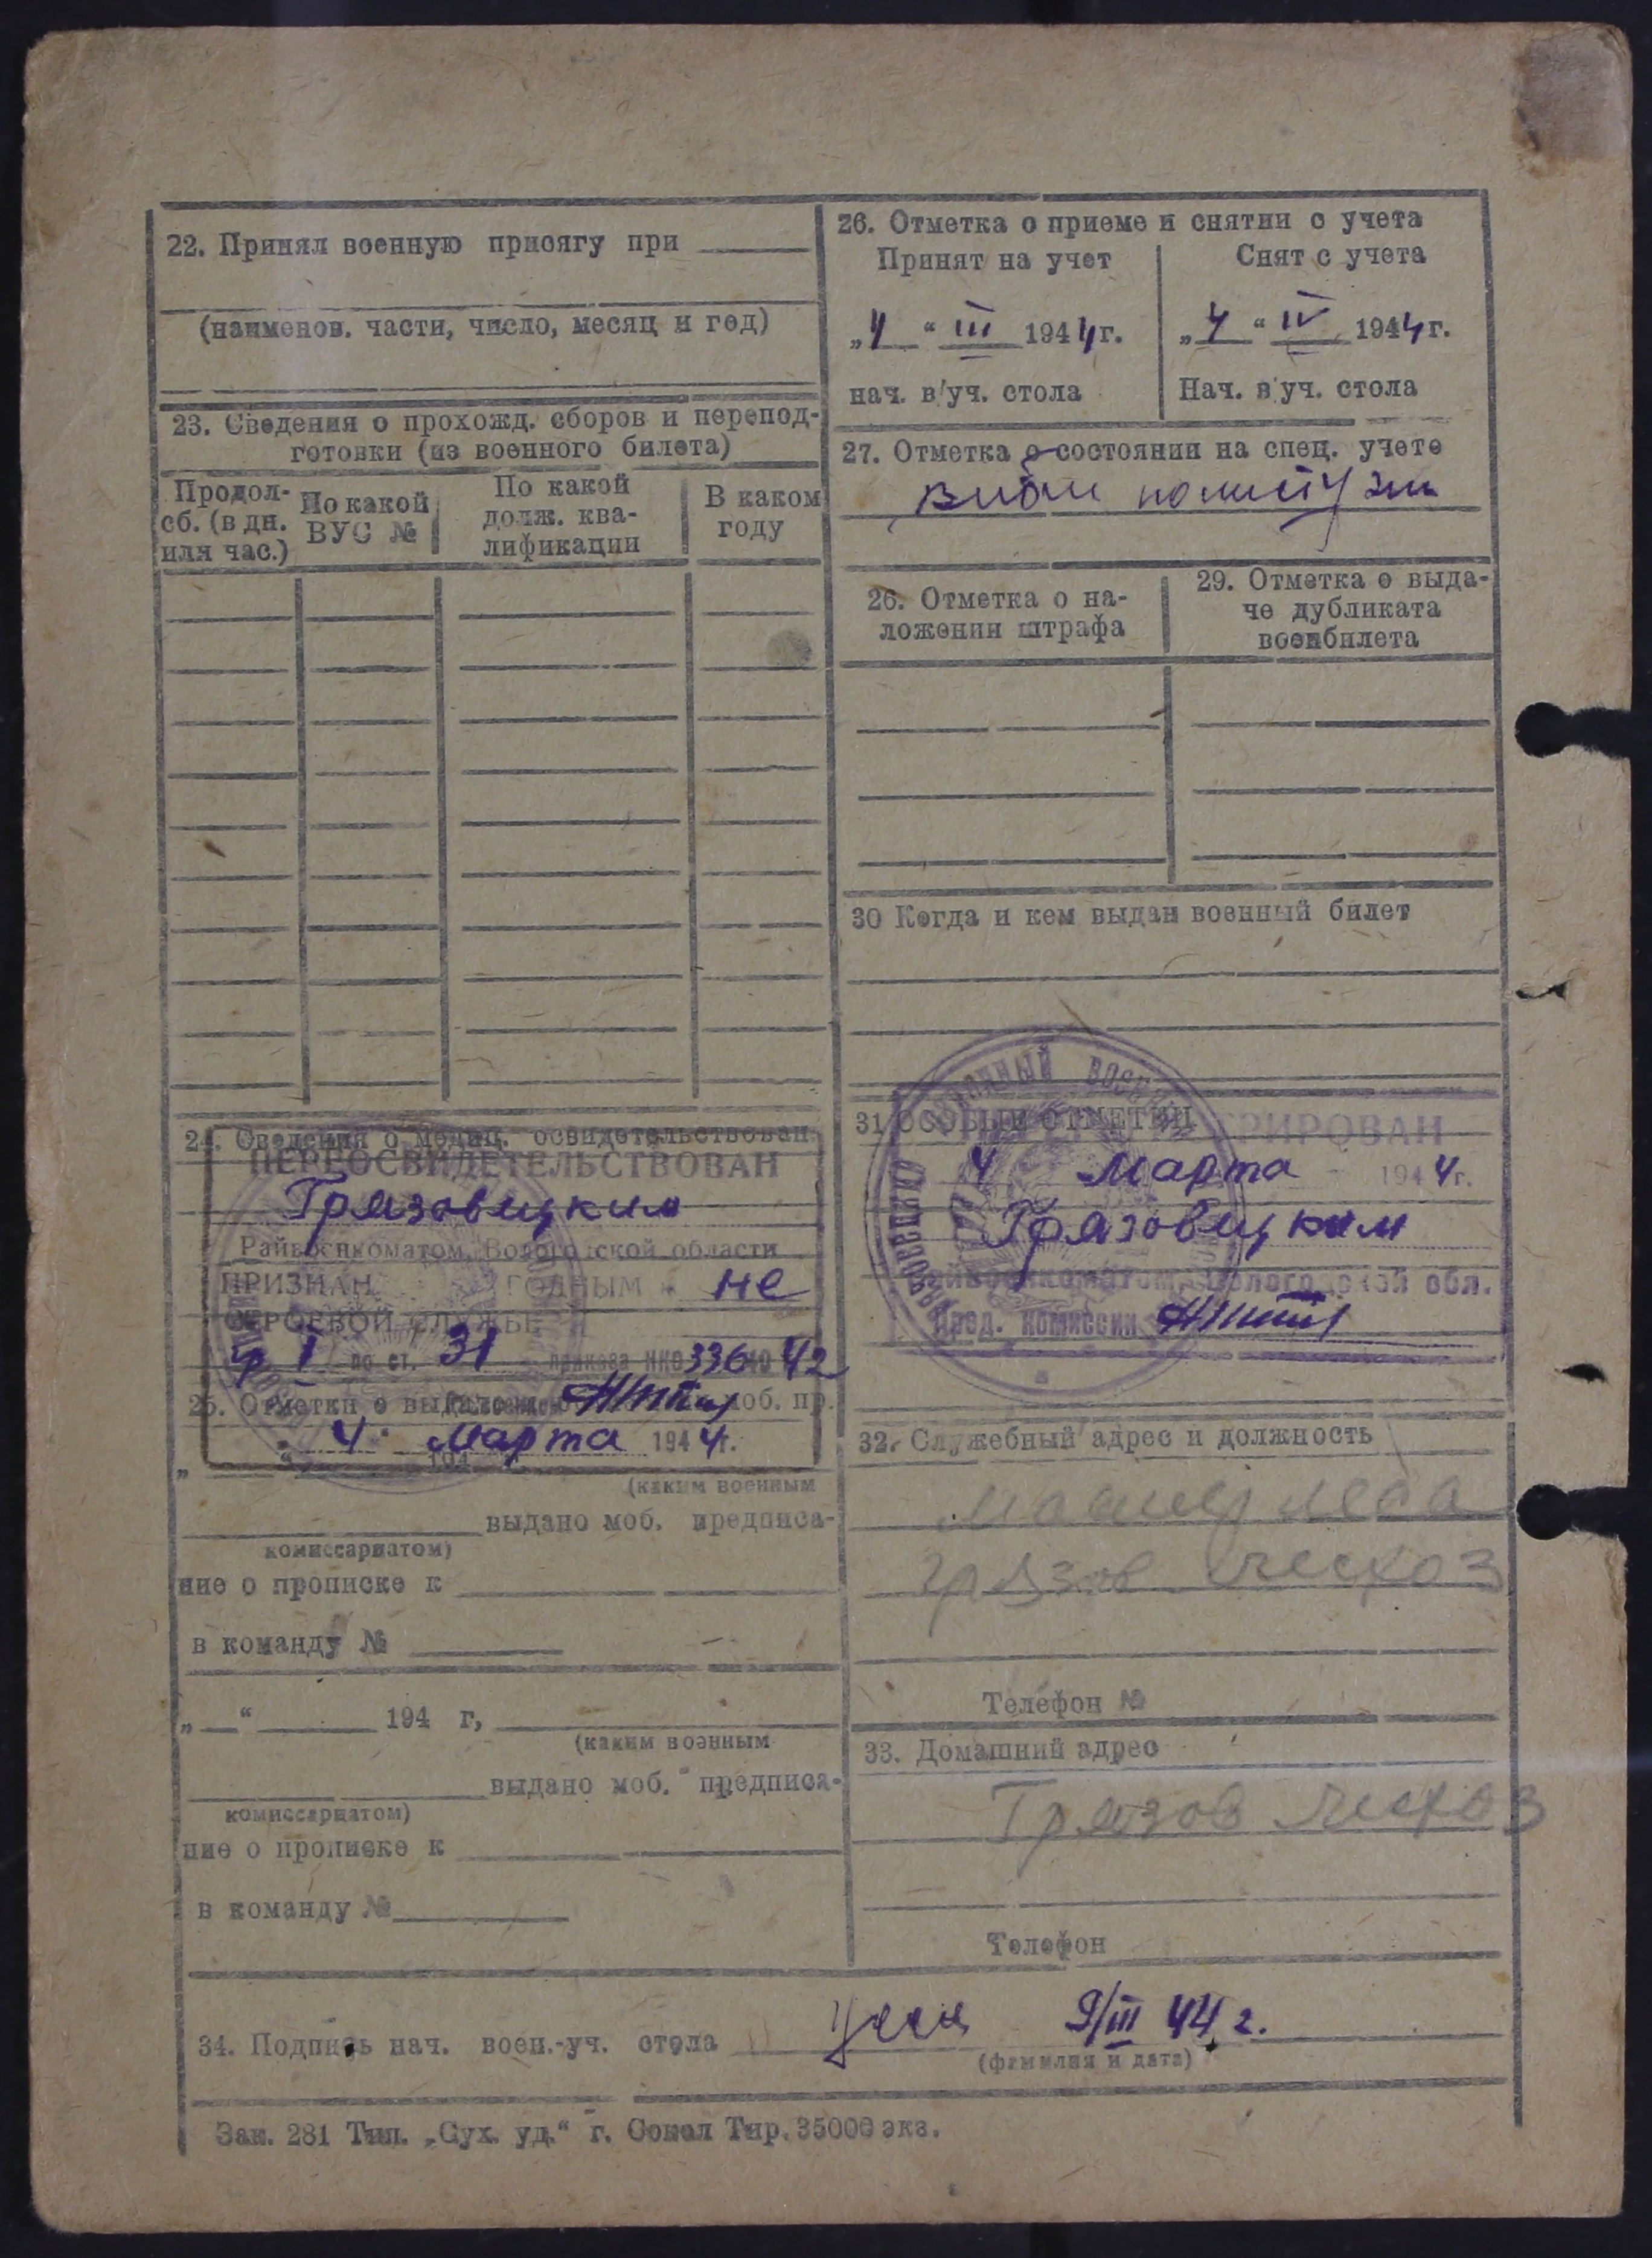 22. Принял военную присягу при
(наименов. части, число, месяц и год)
23. Сведения о прохожд. сборов и перепод-
готовки (из военного билета)
Продол-
сб. (в дн.
или час.)
По какой
ВУС №
По какой
долж. ква-
лификации
В каком
году
24. Сведения о медиц. освидетельствован.
ПЕРЕОСВИДЕТЕЛЬСТВОВАН
Грязовецким
Райвоенкоматом, Вологодской области
ПРИЗНАН ГОДНЫМ к не
СТРОЕВОЙ СЛУЖБЕ
гр I по ст. 31 приказа НКО 336 42
25. Отметки о моб. пр.
„ 4 “ Марта 1944 г.
„ “ 194
(каким военным
выдано моб. предписа-
комиссариатом)
ние о прописке к
в команду №
„ “ 194 г,
(каким военным
выдано моб. предписа-
комиссариатом)
ние о прописке к
в команду №
26. Отметка о приеме и снятии с учета
Принят на учет
„4“ III 1944 г.
нач. в/уч. стола
Снят с учета
„4“ IV 1944 г.
Нач. в/уч. стола
27. Отметка о состоянии на спец. учете
26. Отметка о на-
ложении штрафа
29. Отметка о выда-
че дубликата
военбилета
30 Когда и кем выдан военный билет
31 ОСОБЫЕ ОТМЕТКИ
4 Марта 1944 г.
Грязовецким
Райвоенкоматом, Вологодской обл.
Пред. комиссии
32. Служебный адрес и должность
грязов лесхоз
Телефон №
33. Домашний адрес
Грязов лесхоз
Телефон
34. Подпись нач. воен.-уч. стола 9/III 44 г.
(фамилия и дата)
Зак. 281 Тип. „Сух. уд.“ г. Сокол Тир. 35000 экз.